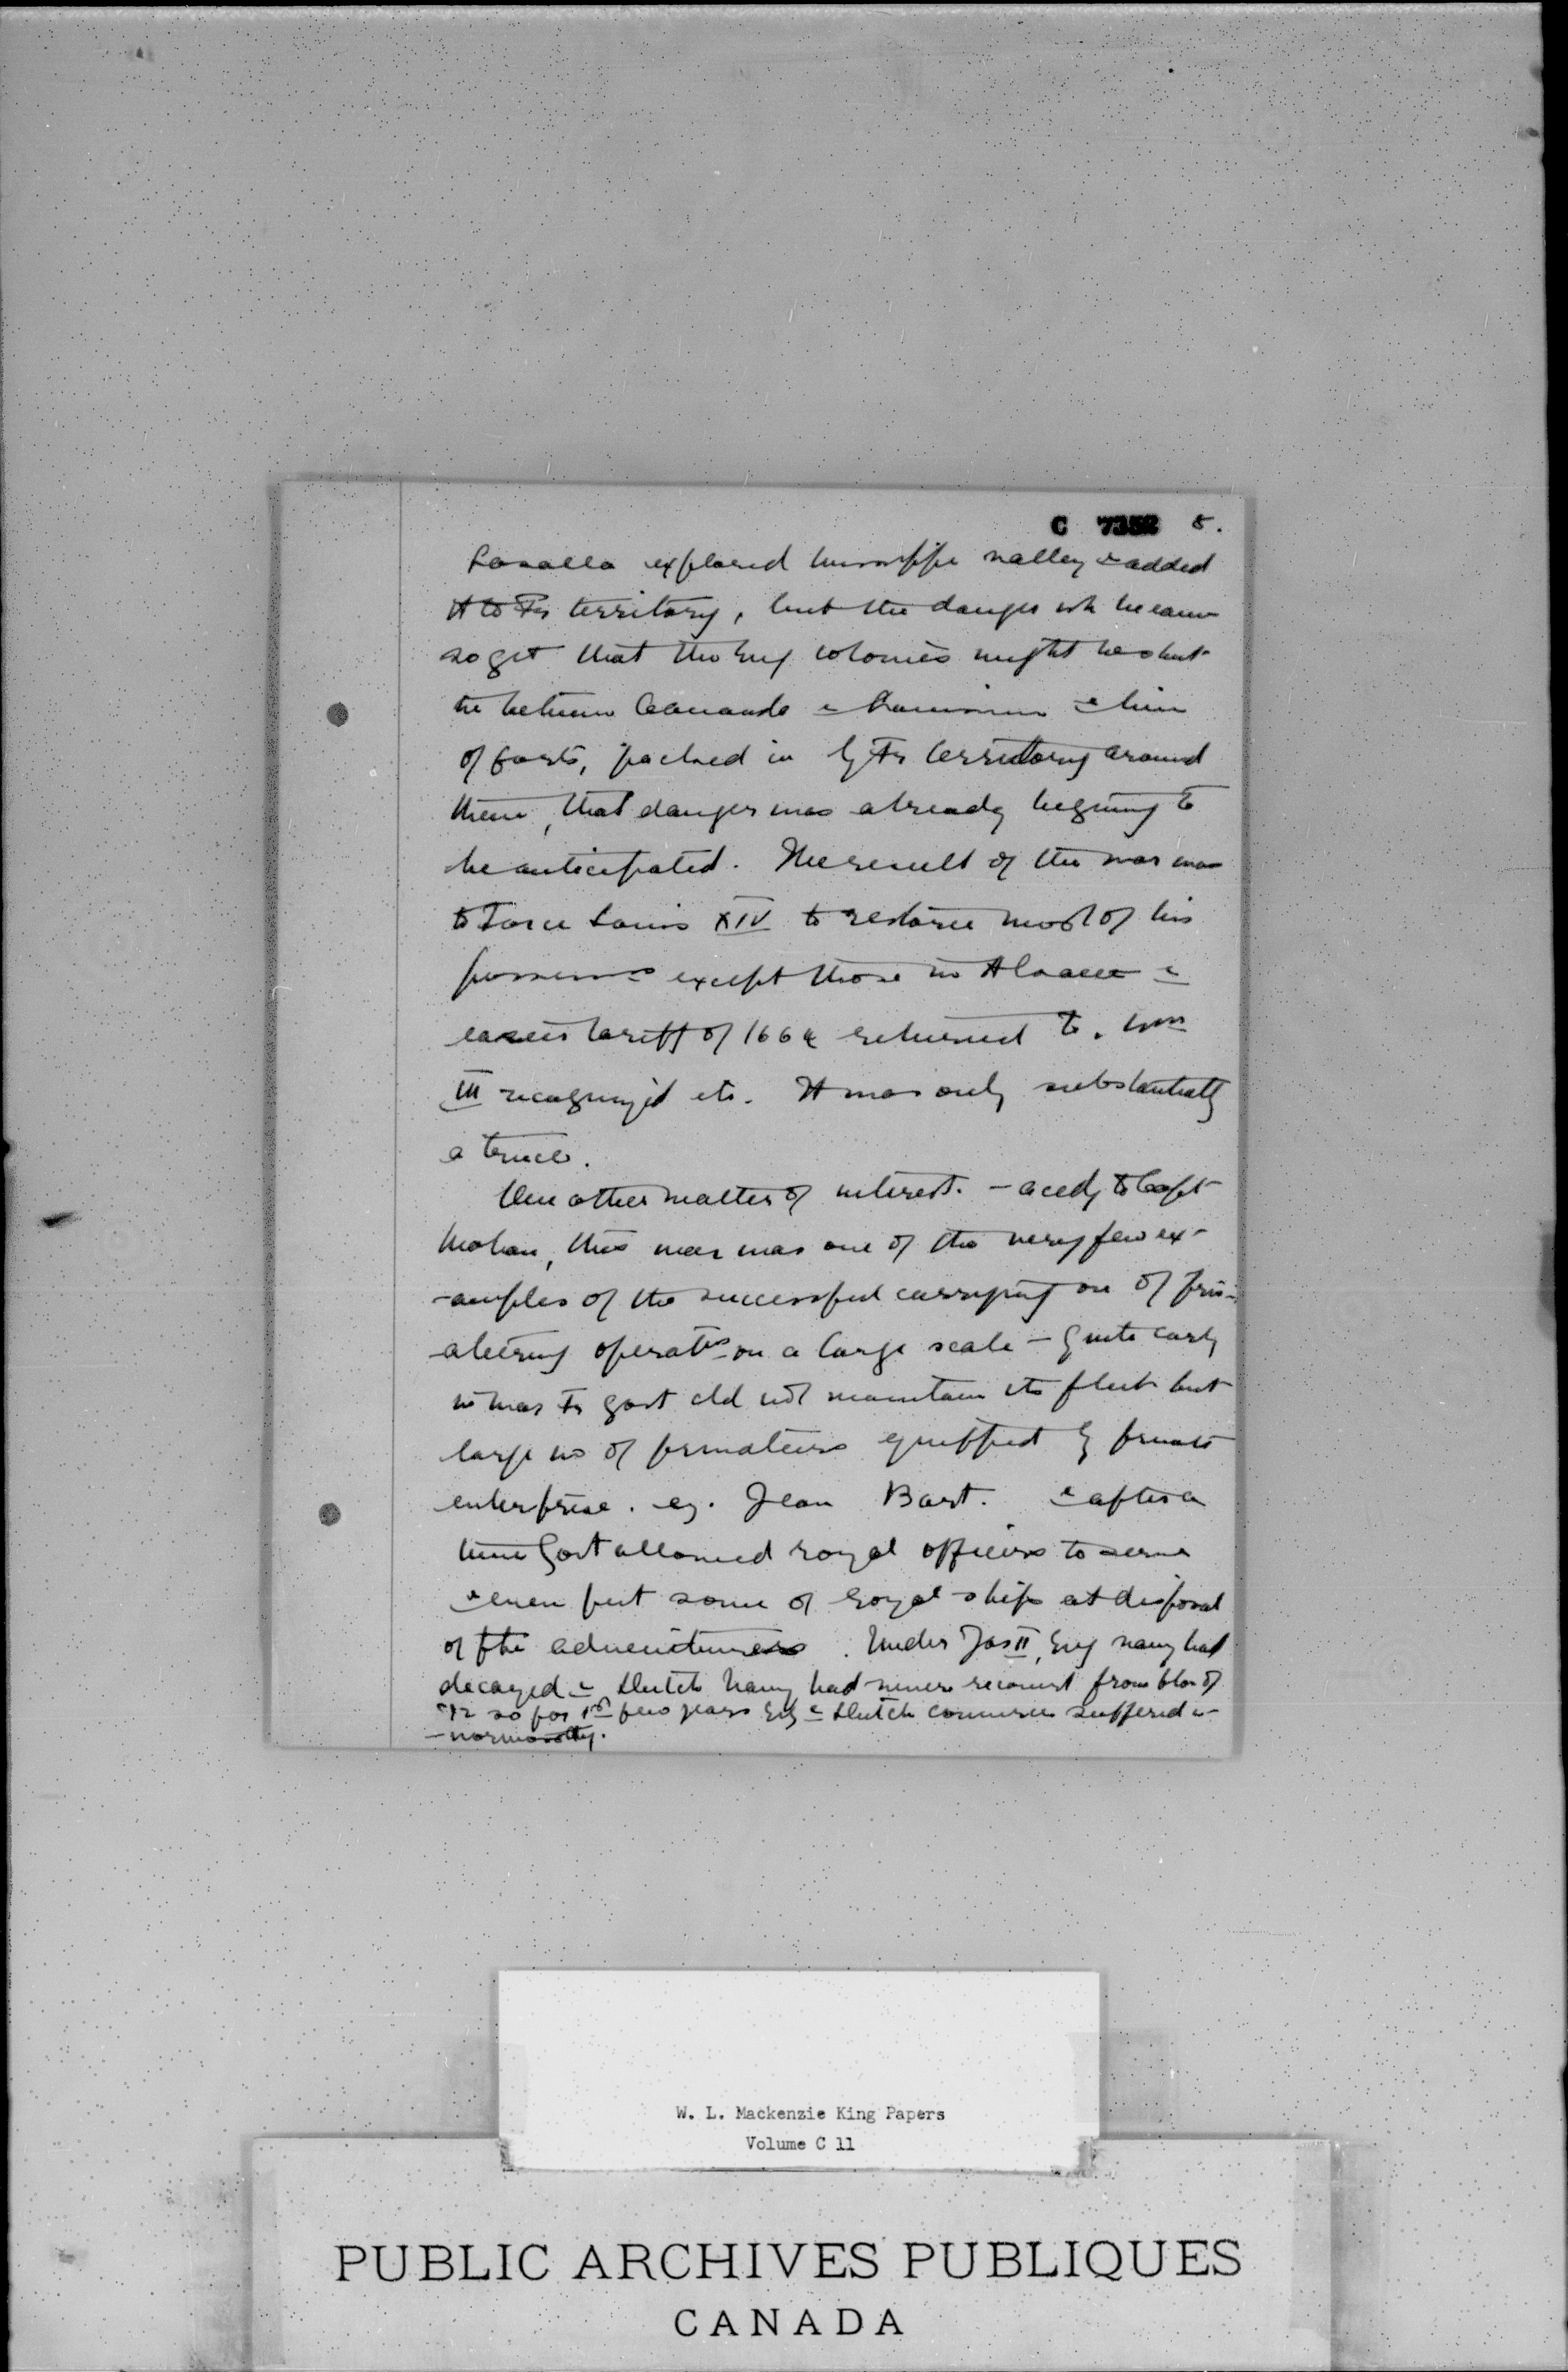 C 7352 5.
Lasalle explored Mississippi valley & added
it to Fr territory, but the danger wh became
so gt that the Eng colonies might be shut
in between Canada & Louisiana & line
of forts, packed in by Fr territory around
them, that danger was already begining to
be anticipated. The result of the war was
to force Louis XIV to restore most of his
possessns except those in Alsace &
easier tariff of 1664 returned to. Wm
III recognized etc. It was only substantially
a truce.
One other matter of interest. - accdg to Capt
Mahan, this war was one of the very few ex-
-amples of the successful carrying on of priv-
-ateering operatns on a large scale - Quite early
in war Fr govt did not maintain its fleet but
large no of privateers equipped by private
enterprise. eg. Jean Bart. & after a
time Govt allowed royal officers to serve
& even put some of royal ships at disposal
of the adventurers. Under Jas II, Eng navy had
decayed & Dutch Navy had never recovered from blow of
'72 so for 1st few years Eng & Dutch commerce suffered e-
-normously.
W. L. Mackenzie King Papers
Volume C 11
PUBLIC ARCHIVES PUBLIQUES
CANADA